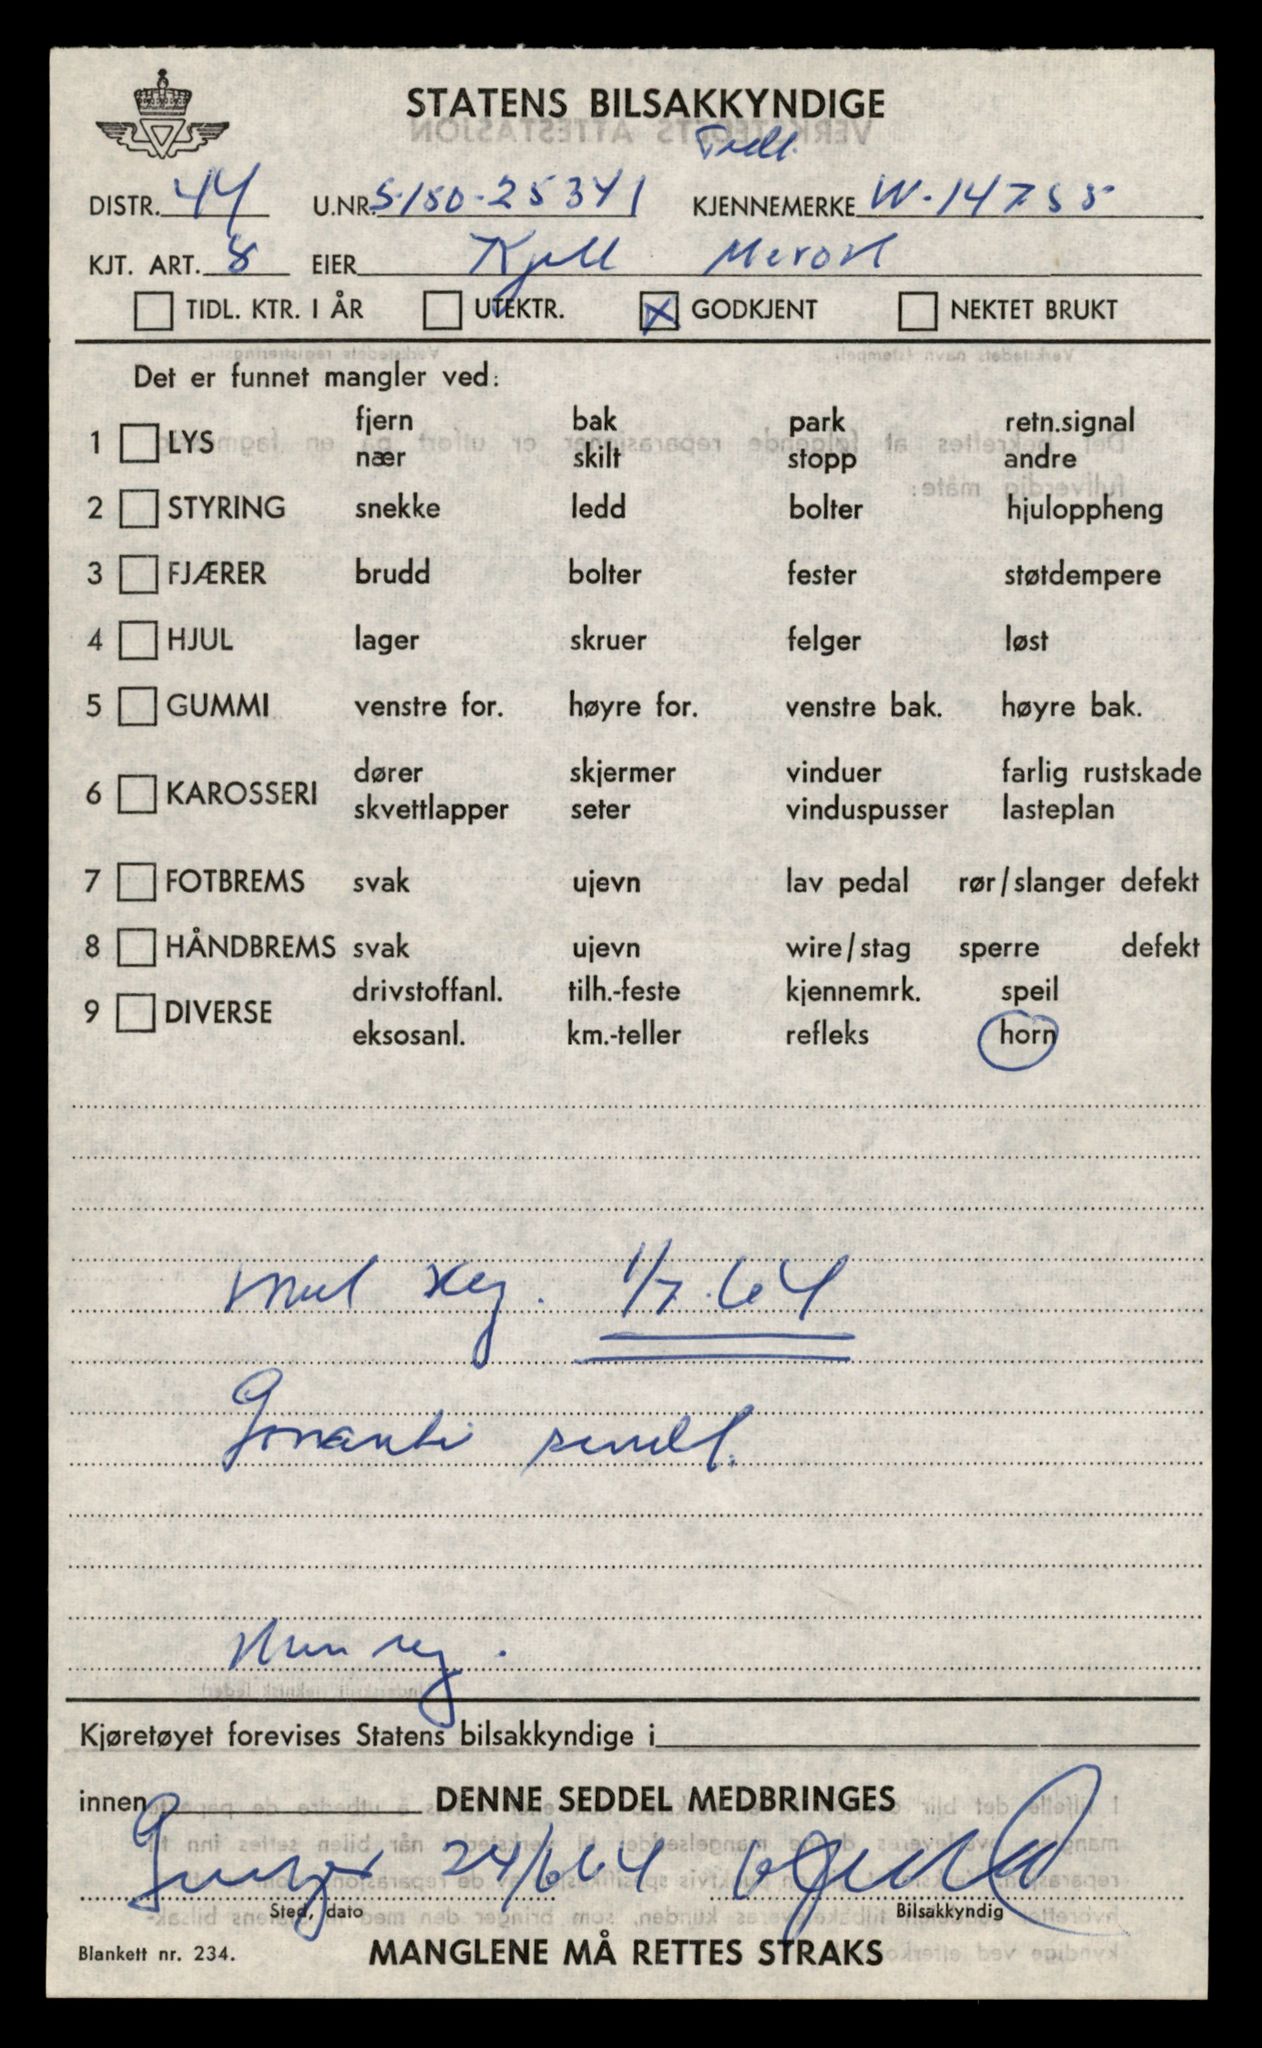 STATENS BILSAKKYNDIGE
Tidl.
DISTR. 44 U.NR. S-150-25341 KJENNEMERKE W-14755
KJT. ART. 8 EIER Kjell
TIDL. KTR. I ÅR UTEKTR. GODKJENT NEKTET BRUKT
Det er funnet mangler ved:
fjern bak park retn.signal
1 LYS
nær skilt stopp andre
2 STYRING snekke ledd bolter hjuloppheng
3 FJÆRER brudd bolter fester støtdempere
4 HJUL lager skruer felger løst
5 GUMMI venstre for. høyre for. venstre bak. høyre bak.
dører skjermer vinduer farlig rustskade
6 KAROSSERI
skvettlapper seter vinduspusser lasteplan
7 FOTBREMS svak ujevn lav pedal rør/slanger defekt
8 HÅNDBREMS svak ujevn wire/stag sperre defekt
drivstoffanl. tilh.-feste kjennemrk. speil
9 DIVERSE
eksosanl. km.-teller refleks horn
reg. 1/7.64
Garanti
reg.
Kjøretøyet forevises Statens bilsakkyndige i
innen DENNE SEDDEL MEDBRINGES
24/6 64
Sted, dato Bilsakkyndig
Blankett nr. 234. MANGLENE MÅ RETTES STRAKS